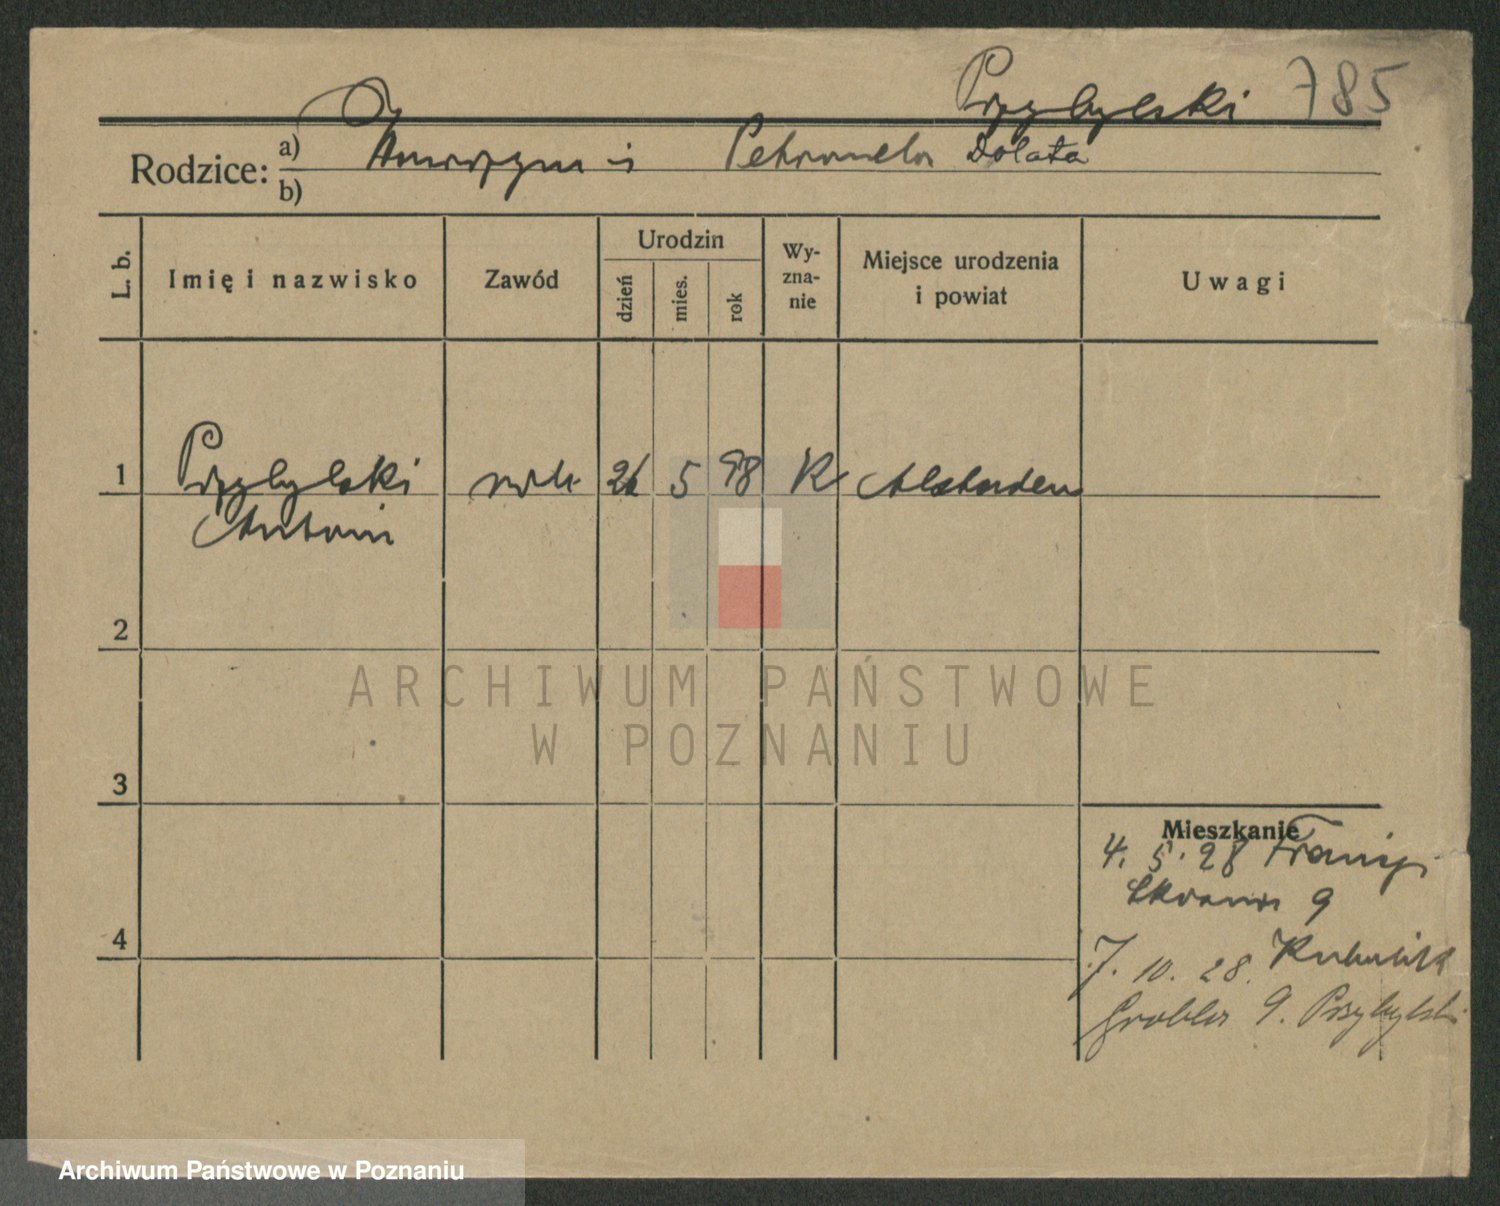 Przybylski 785
Rodzice: a) Petronela Dolata
b)
L. b.
Imię i nazwisko
Zawód
Urodzin
dzień
mies.
rok
Wy-
zna-
nie
Miejsce urodzenia
i powiat
Uwagi
1 Przybylski rob. 26 5 98 K Alstaden
Antoni
2
3
4
Mieszkanie
4. 5. 28
9
7. 10. 28.
Grobla 9. Przybylski
ARCHIWUM PAŃSTWOWE
W POZNANIU
Archiwum Państwowe w Poznaniu